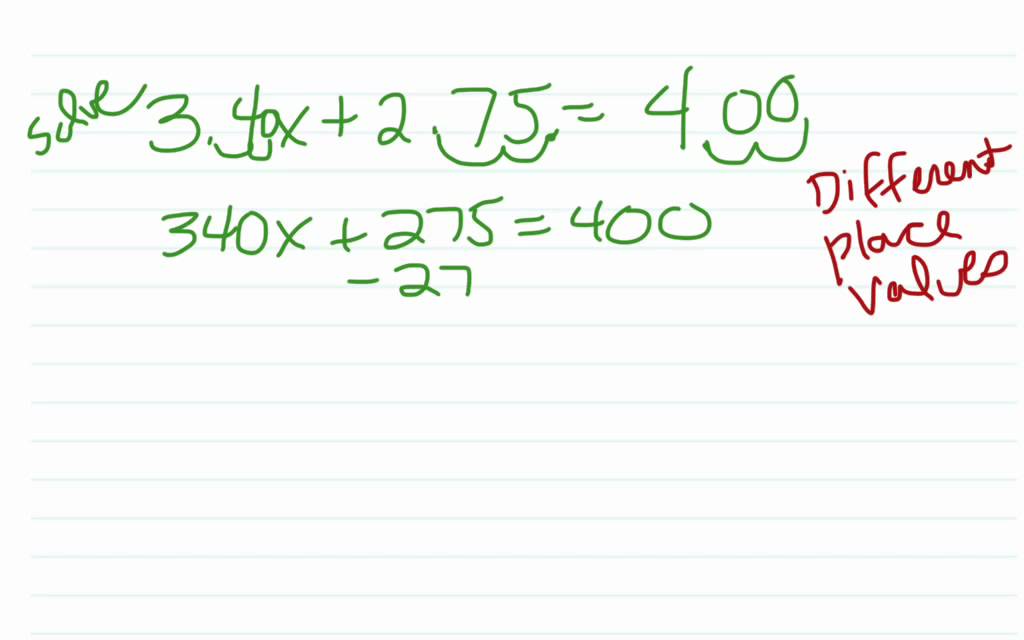 solve 3.40x + 2.75. = 4.00.
340x + 275 = 400
- 27
Different
place
values